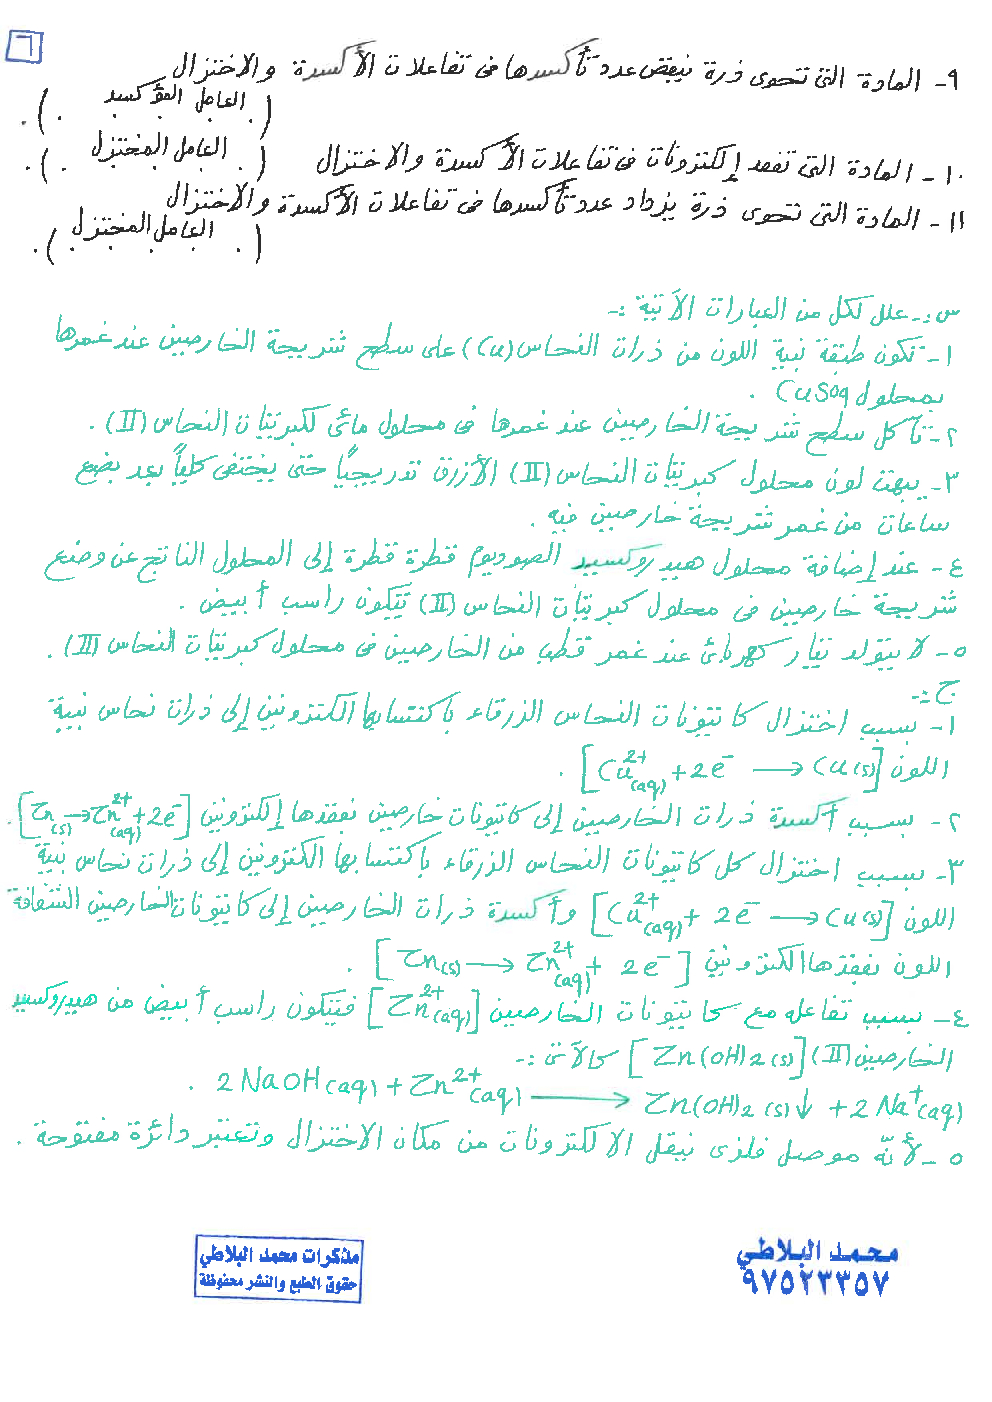 ٦
٩- المادة التى تحوى ذرة ينقص عدد تأكسدها فى تفاعلات الأكسدة والاختزال
( . العامل المؤكسد . ) .
١٠- المادة التى تفقد إلكترونات فى تفاعلات الأكسدة والاختزال ( . العامل المختزل . ) .
١١- المادة التى تحوى ذرة يزداد عدد تأكسدها فى تفاعلات الأكسدة والاختزال
( . العامل المختزل . ) .
س:- علل لكل من العبارات الآتية :-
١- تتكون طبقة بنية اللون من ذرات النحاس (Cu) على سطح شريحة الخارصين عند غمرها
بمحلول CuSO4 .
٢- تآكل سطح شريحة الخارصين عند غمرها فى محلول مائى لكبريتات النحاس (II) .
٣- يبهت لون محلول كبريتات النحاس (II) الأزرق تدريجيًا حتى يختفى كلياً بعد بضع
ساعات من غمر شريحة خارصين فيه .
٤- عند إضافة محلول هيدروكسيد الصوديوم قطرة قطرة إلى المحلول الناتج عن وضع
شريحة خارصين فى محلول كبريتات النحاس (II) يتكون راسب أبيض .
٥- لا يتولد تيار كهربائى عند غمر قطب من الخارصين فى محلول كبريتات النحاس (II) .
ج:-
١- بسبب اختزال كاتيونات النحاس الزرقاء باكتسابها الكترونين إلى ذرات نحاس بنية
اللون [Cu²⁺(aq) + 2e⁻ ⟶ Cu(s)] .
٢- بسبب أكسدة ذرات الخارصين إلى كاتيونات خارصين بفقدها إلكترونين [Zn(s) → Zn²⁺(aq) + 2e⁻] .
٣- بسبب اختزال كل كاتيونات النحاس الزرقاء باكتسابها الكترونين إلى ذرات نحاس بنية
اللون [Cu²⁺(aq) + 2e⁻ ⟶ Cu(s)] وأكسدة ذرات الخارصين إلى كاتيونات الخارصين الشفافة
اللون بفقدها الكترونين [Zn(s) ⟶ Zn²⁺(aq) + 2e⁻] .
٤- بسبب تفاعله مع كاتيونات الخارصين [Zn²⁺(aq)] فيتكون راسب أبيض من هيدروكسيد
الخارصين (II) [Zn(OH)2(s)] كالآتى :-
2NaOH(aq) + Zn²⁺(aq) ⟶ Zn(OH)2(s)↓ + 2Na⁺(aq) .
٥- لأنّه موصل فلزى ينقل الالكترونات من مكان الاختزال وتعتبر دائرة مفتوحة .
محمد البلاطي
٩٧٥٢٣٣٥٧
مذكرات محمد البلاطي
حقوق الطبع والنشر محفوظة